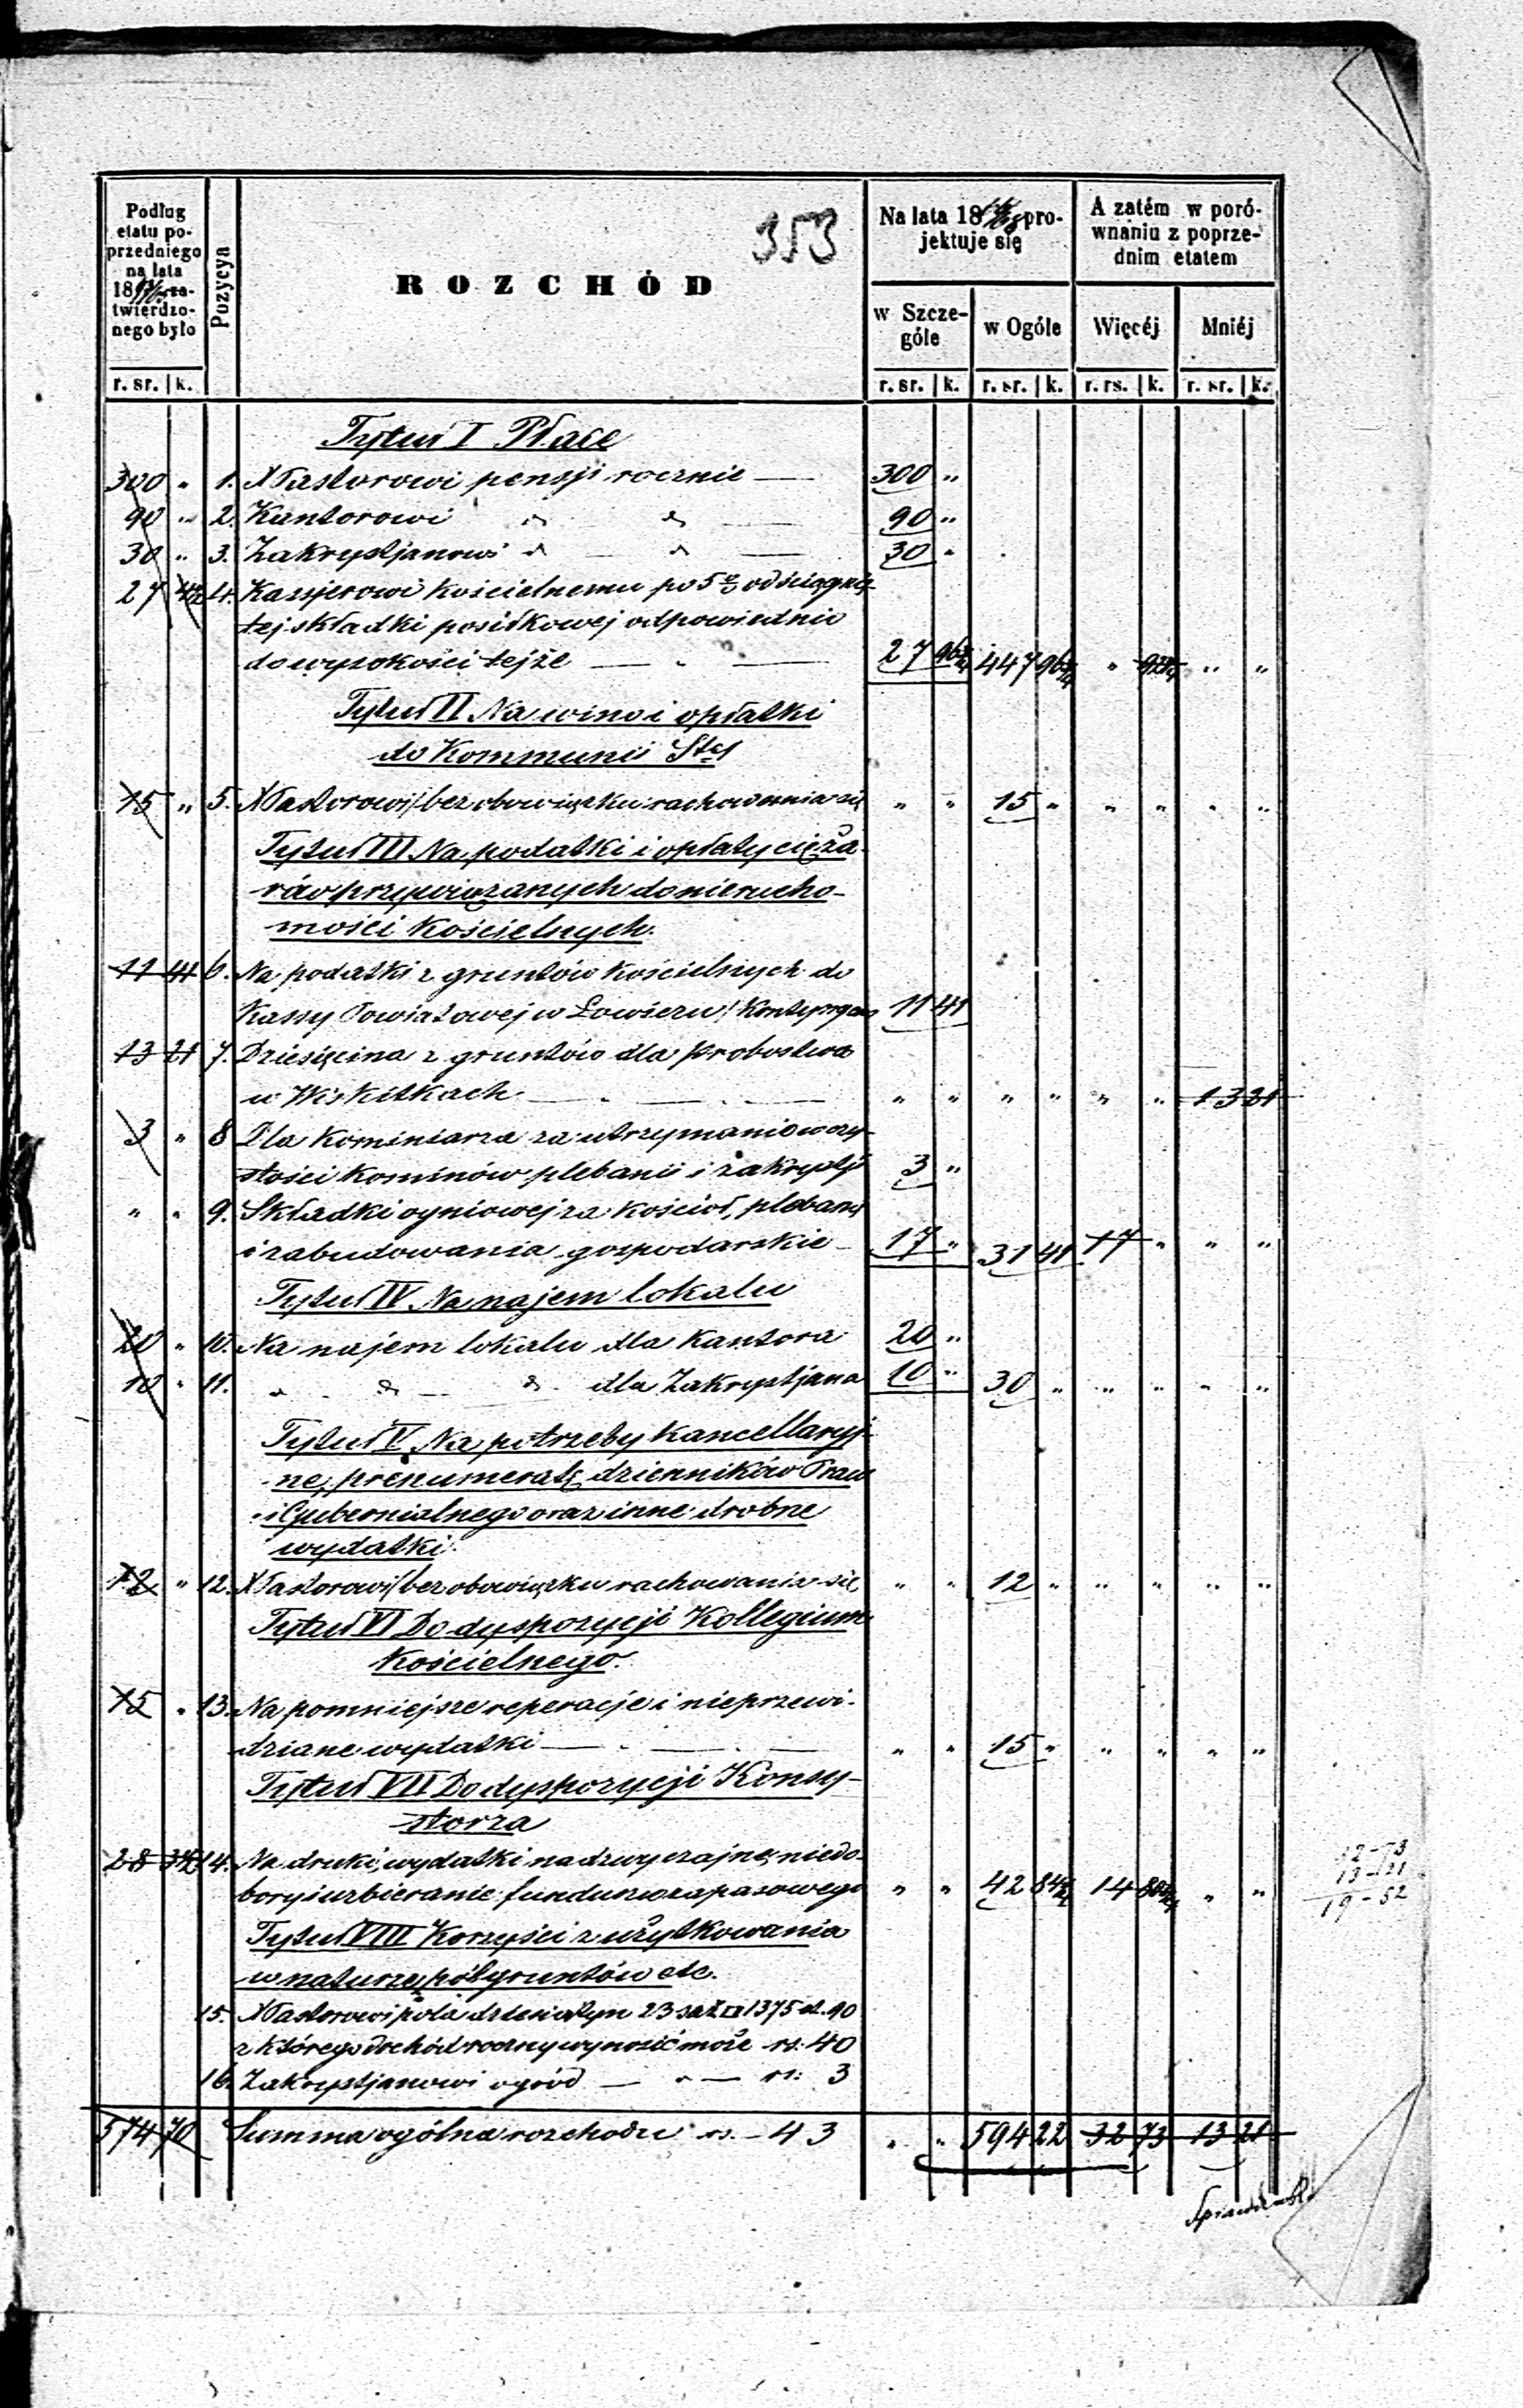 353
Podług etatu poprzedniego na lata 18 zatwierdzonego było
Pozycya
ROZCHÓD
Na lata 18 projektuje się
A zatém w porównaniu z poprzednim etatem
w Szczególe
w Ogóle
Więcéj
Mniéj
r. sr. k. r. sr. k. r. sr. k. r. rs. k. r. sr. k.
Tytuł I Płace
300 " 1. XPastorowi pensji rocznie — 300 "
90 " 2. Kantorowi " " — 90 "
30 " 3. Zakrystjanowi " — " — 30 "
27 4. Kassjerowi kościelnemu po 5% od ściągnię-
tej składki posiłkowej odpowiednio
do wysokości tejże — " — 27 96 447 96 " " "
Tytuł II Na wino i opłatki
do Kommunii Stej
15 " 5. XPastorowi /bez obowiązku rachowania się " " 15 " " " " "
Tytuł III Na podatki i opłaty cięża-
rów przywiązanych do nierucho-
mości kościelnych.
11 41 6. Na podatki z gruntów kościelnych do
Kassy Powiatowej w Łowiczu / Kontyngens 11 41
13 21 7. Dziesięcina z gruntów dla Probostwa
w Wiskitkach — " " " " " " 13 21
3 " 8 Dla Kominiarza za utrzymanie w czy-
stości kominów plebanii i zakrystji 3 "
" " 9. Składki ogniowej za kościoł, plebanię
i zabudowania gospodarskie — 17 " 31 41 17 " " "
Tytuł IV Na najem lokalu
20 " 10. Na najem lokalu dla Kantora 20 "
10 " 11. " " " dla Zakrystjana 10 " 30 " " " " "
Tytuł V Na potrzeby kancellaryj-
ne, prenumeratę dzienników Praw
i Gubernialnego oraz inne drobne
wydatki.
12 " 12. XPastorowi /bez obowiązku rachowania się " " 12 " " " " "
Tytuł VI Do dyspozycji Kollegium
Kościelnego.
15 " 13. Na pomniejsze reperacje i nieprzewi-
dziane wydatki — " " 15 " " " " "
Tytuł VII Do dyspozycji Konsy-
storza
28 14. Na druki, wydatki nadzwyczajne, niedo-
bory i uzbieranie funduszu zapasowego " " 42 84 14 " "
13-21
19-52
Tytuł VIII Korzyści z użytkowania
w naturze, pól, gruntów etc.
15. XPastorowi pola dziesiatyn 23 saż □ 1375 40
z którego dochód roczny wynosić może rs: 40
16. Zakrystjanowi ogród — " — rs: 3
574 70 Summa ogólna rozchodu rs. — 43 " " 594 22 32 73 13 21